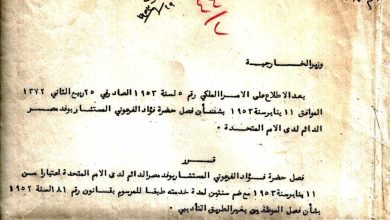 ٤٤/٢
وزير الخارجية
بعد الاطلاع على الامر الملكي رقم ٥ لسنة ١٩٥٣ الصادر في ٢٥ ربيع الثاني ١٣٧٢
الموافق ١١ يناير سنة ١٩٥٣ بشأن فصل حضرة فؤاد الفرعوني المستشار بوفد مصر
الدائم لدى الامم المتحدة ٠
قرر
فصل حضرة فؤاد الفرعوني المستشار بوفد مصر الدائم لدى الامم المتحدة اعتبارا من
١١ يناير سنة ١٩٥٣ مع ضم سنتين لمدة خدمته طبقا للمرسوم بقانون رقم ١٨١ لسنة ١٩٥٢
بشأن فصل الموظفين بغير الطريق التأديبي ٠